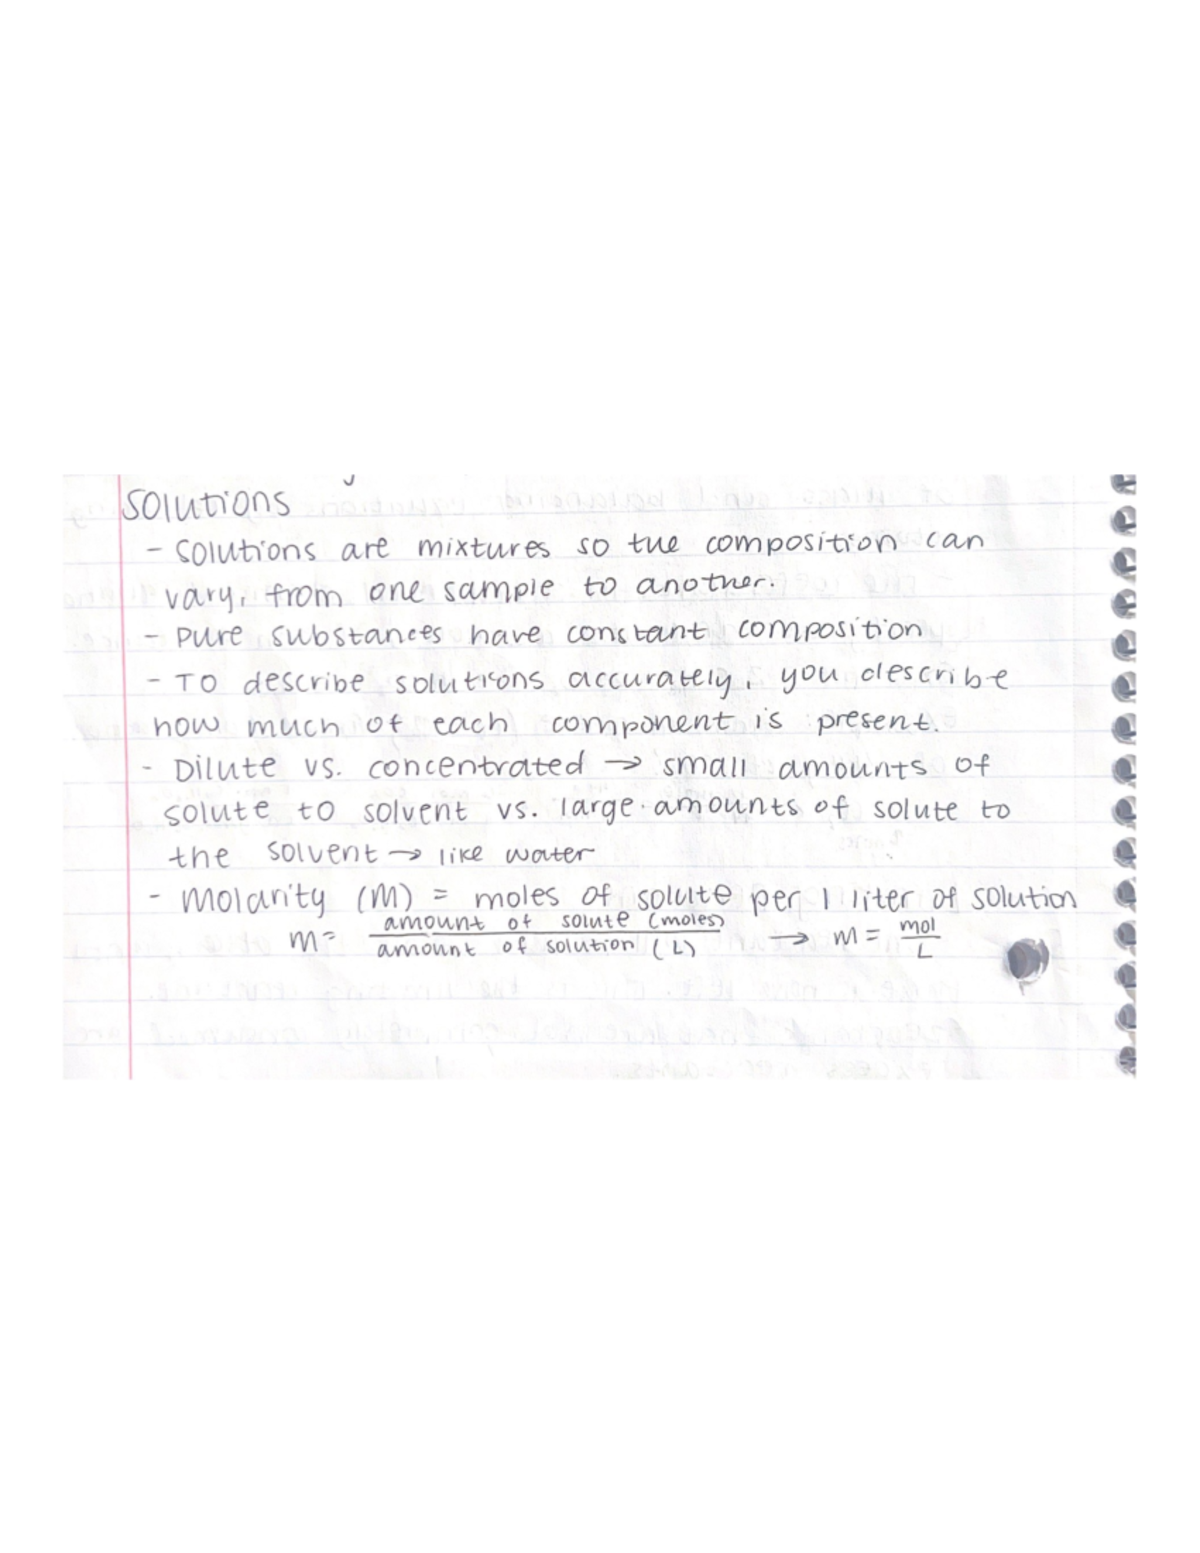 Solutions
- Solutions are mixtures so the composition can
vary, from one sample to another.
- Pure substances have constant composition
- To describe solutions accurately, you describe
how much of each component is present.
- Dilute vs. concentrated → small amounts of
solute to solvent vs. large amounts of solute to
the solvent → like water
- Molarity (M) = moles of solute per 1 liter of solution
M = amount of solute (moles) / amount of solution (L) → M = mol / L